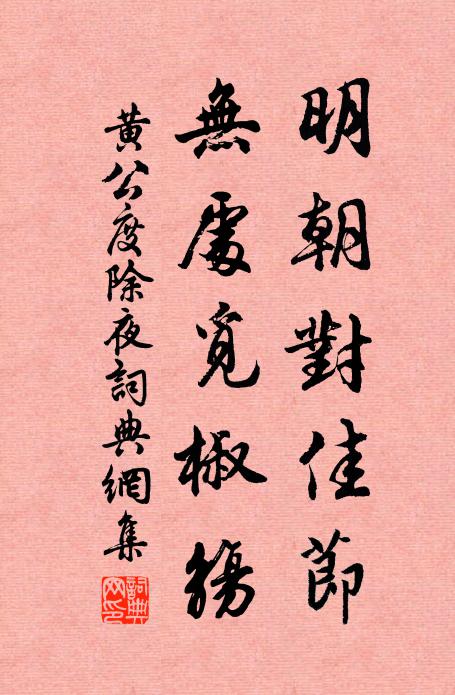 明朝對佳節
無處覓椒觴
黃公度除夜詞典網集
詞典網印